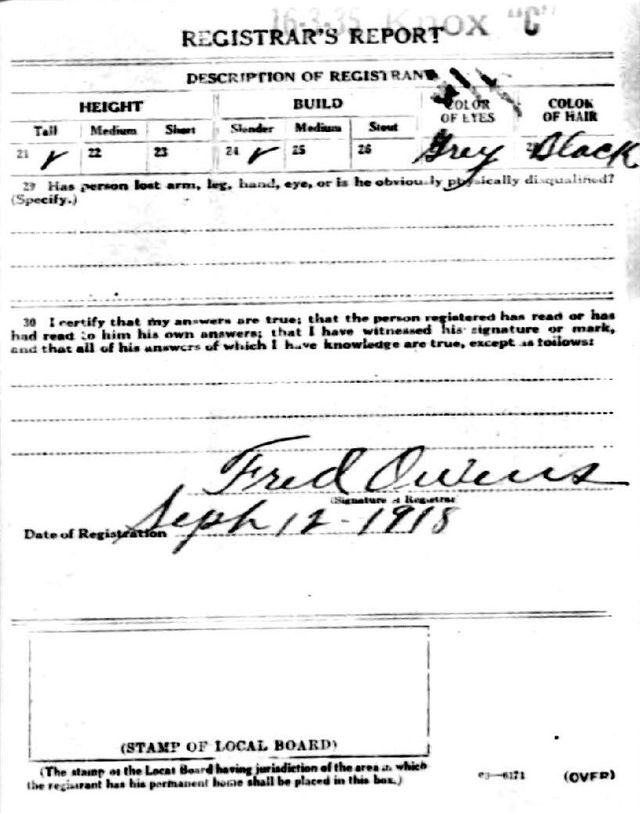 16-3-35 Knox "C"
REGISTRAR'S REPORT
DESCRIPTION OF REGISTRANT
HEIGHT BUILD COLOR OF EYES COLOR OF HAIR
Tall Medium Short Slender Medium Stout
21 ✓ 22 23 24 ✓ 25 26 Grey Black
29 Has person lost arm, leg, hand, eye, or is he obviously physically disqualified?
(Specify.)
30 I certify that my answers are true; that the person registered has read or has
had read to him his own answers; that I have witnessed his signature or mark,
and that all of his answers of which I have knowledge are true, except as follows:
Fred Owens
(Signature of Registrar
Date of Registration Sept 12-1918
(STAMP OF LOCAL BOARD)
(The stamp of the Local Board having jurisdiction of the area in which
the registrant has his permanent home shall be placed in this box.)
03—6171 (OVER)